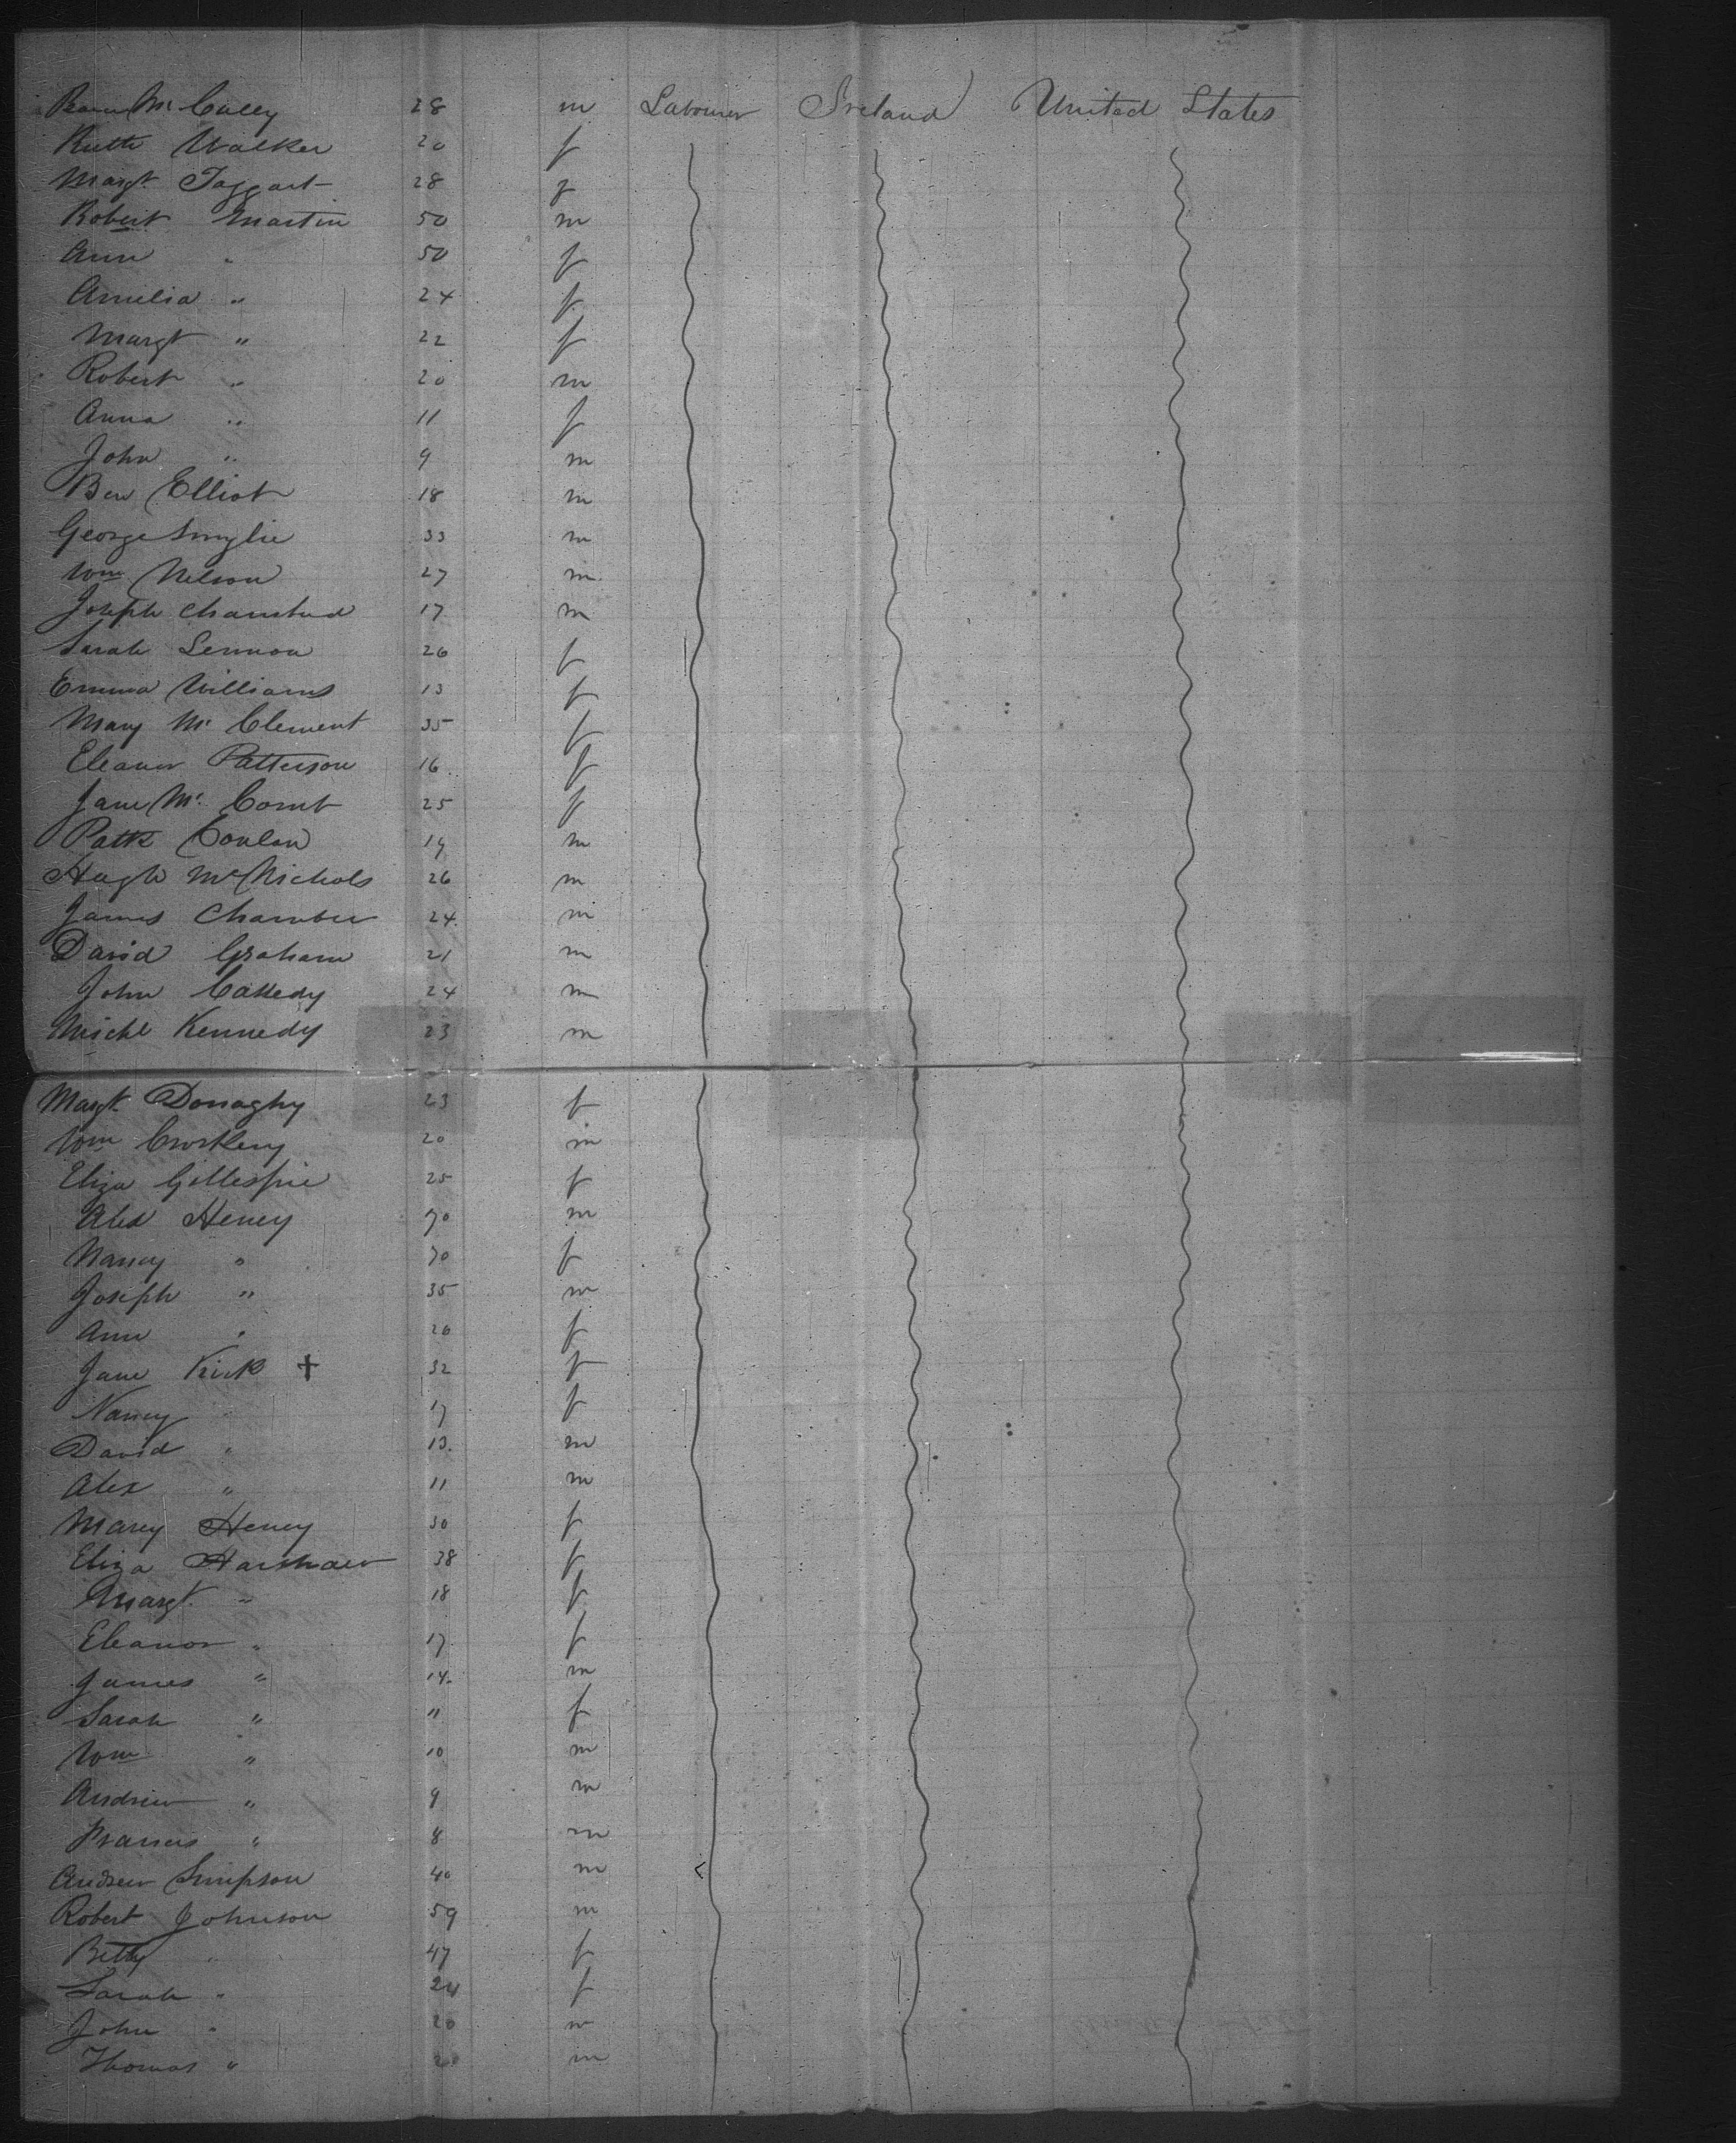 McCully 28 m Labourer Ireland United States
Ruth Walker 20 f
Margt Taggart 28 f
Robert Martin 50 m
Ann " 50 f
Amelia " 24 f
Margt " 22 f
Robert " 20 m
Anna " 11 f
John " 9 m
Ben Elliot 18 m
George Smylie 33 m
Wm Nelson 27 m
Joseph 17 m
Sarah Lennon 26 f
Emma Williams 13 f
Mary Mc Clement 35 f
Eleanor Patterson 16 f
Jane Mc Comb 25 f
Patk Conlon 19 m
Hugh McNichols 26 m
James Chamber 24 m
David Graham 21 m
John 24 m
Michl Kennedy 23 m
Margt Donaghy 23 f
Wm 20 m
Eliza Gillespie 25 f
Alex Heney 70 m
Nancy " 70 f
Joseph " 35 m
Ann " 26 f
Jane Kirk + 32 f
Nancy " 17 f
David " 13 m
Alex " 11 m
Marey Heney 30 f
Eliza Harshaw 38 f
Margt " 18 f
Eleanor " 17 f
James " 14 m
Sarah " 11 f
Wm " 10 m
Andrew " 9 m
Francis " 8 m
Andrew Simpson 40 m
Robert Johnson 59 m
Betty " 47 f
Sarah " 24 f
John " 20 m
Thomas " m